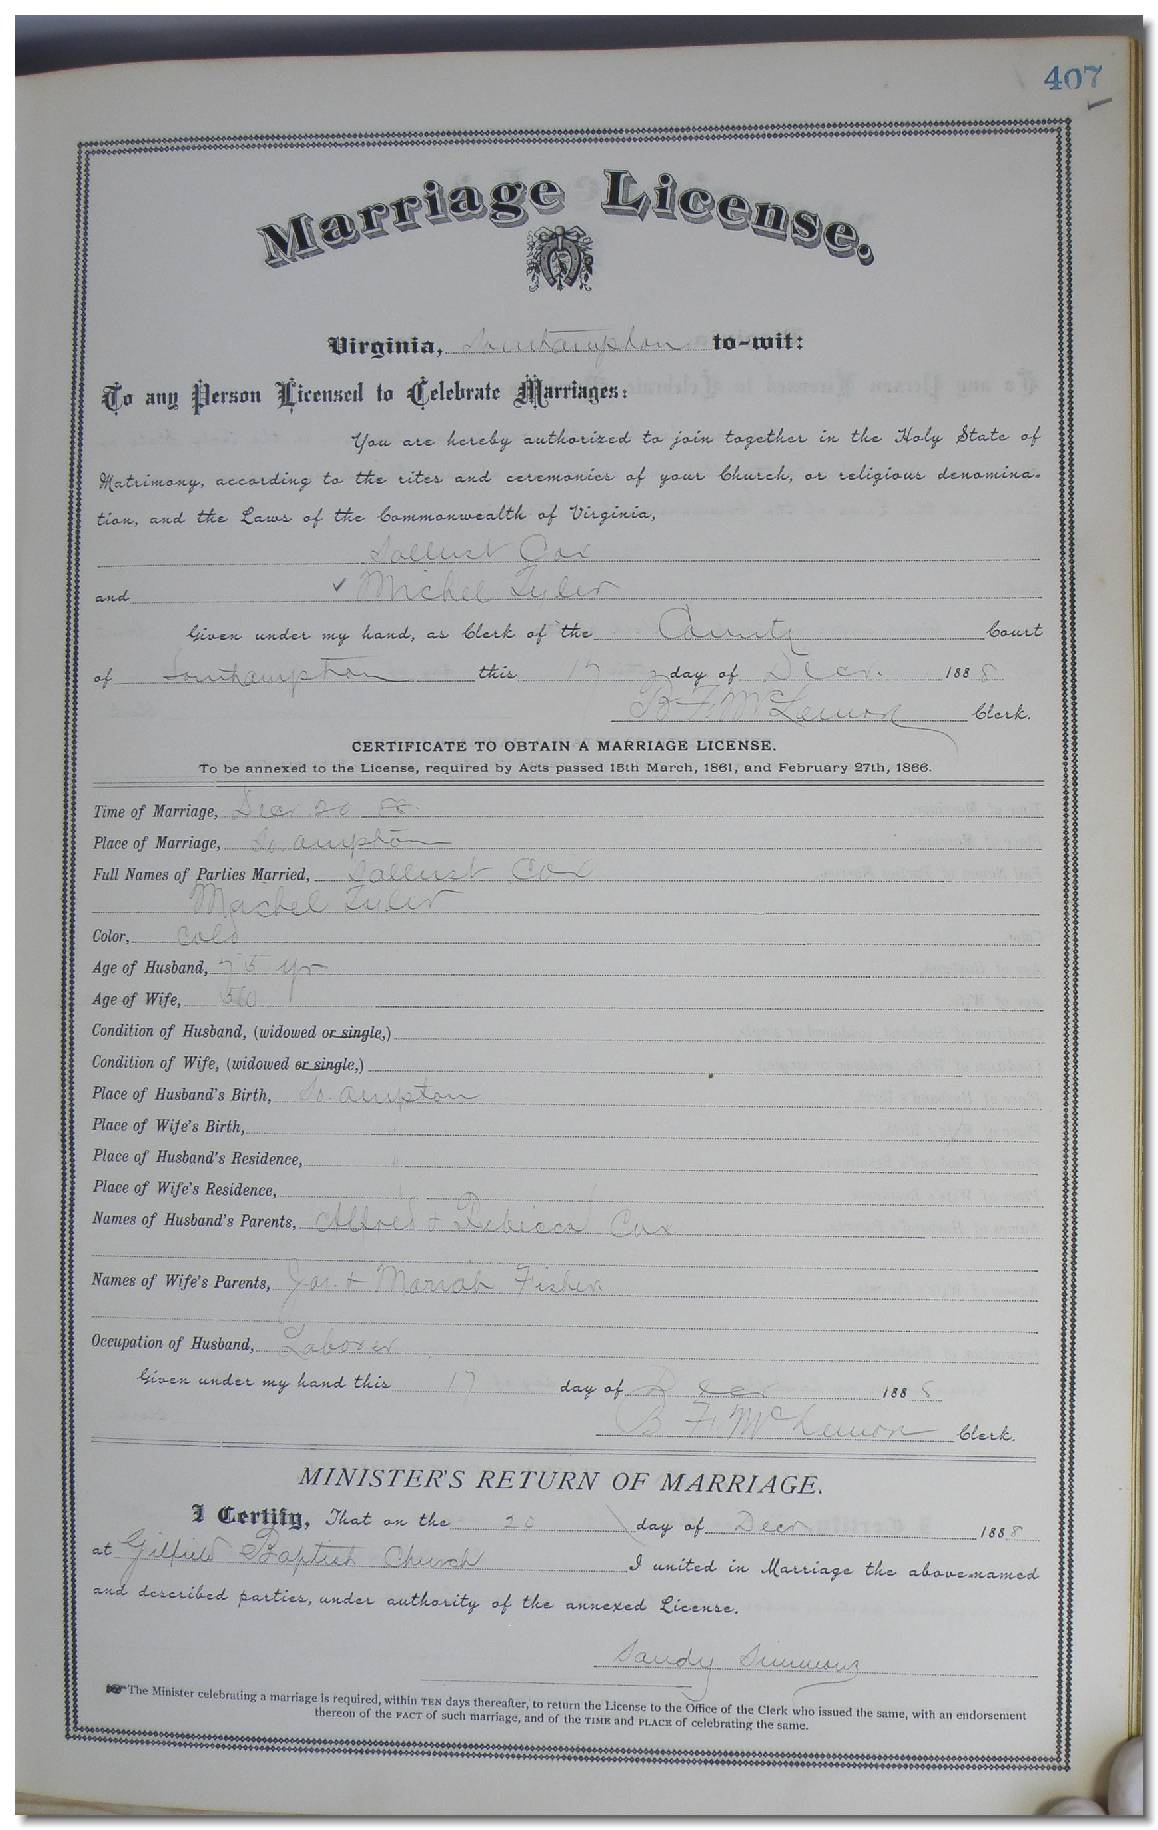 407
Marriage License.
Virginia, Southampton to-wit:
To any Person Licensed to Celebrate Marriages:
You are hereby authorized to join together in the Holy State of
Matrimony, according to the rites and ceremonies of your Church, or religious denomina-
tion, and the Laws of the Commonwealth of Virginia,
Sallust Cox
and Michel Tyler
Given under my hand, as Clerk of the County Court
of Southampton this 17 day of Decr. 1888
B F McLemore Clerk.
CERTIFICATE TO OBTAIN A MARRIAGE LICENSE.
To be annexed to the License, required by Acts passed 15th March, 1861, and February 27th, 1866.
Time of Marriage, Decr 20 88
Place of Marriage, So. ampton
Full Names of Parties Married, Sallust Cox
Machel Tyler
Color, Cold
Age of Husband, 75 yr
Age of Wife, 50
Condition of Husband, (widowed or single,)
Condition of Wife, (widowed or single,)
Place of Husband's Birth, So. ampton
Place of Wife's Birth, "
Place of Husband's Residence, "
Place of Wife's Residence, "
Names of Husband's Parents, Alfred + Rebicca Cox
Names of Wife's Parents, Jas. + Mariah Fisher
Occupation of Husband, Laborer
Given under my hand this 17 day of Decr 1888
B F McLemore Clerk.
MINISTER'S RETURN OF MARRIAGE.
I Certify, That on the 20 day of Decr 1888
at Gilfield Baptist Church I united in Marriage the above-named
and described parties, under authority of the annexed License.
Sandy Simmons
The Minister celebrating a marriage is required, within TEN days thereafter, to return the License to the Office of the Clerk who issued the same, with an endorsement
thereon of the FACT of such marriage, and of the TIME and PLACE of celebrating the same.